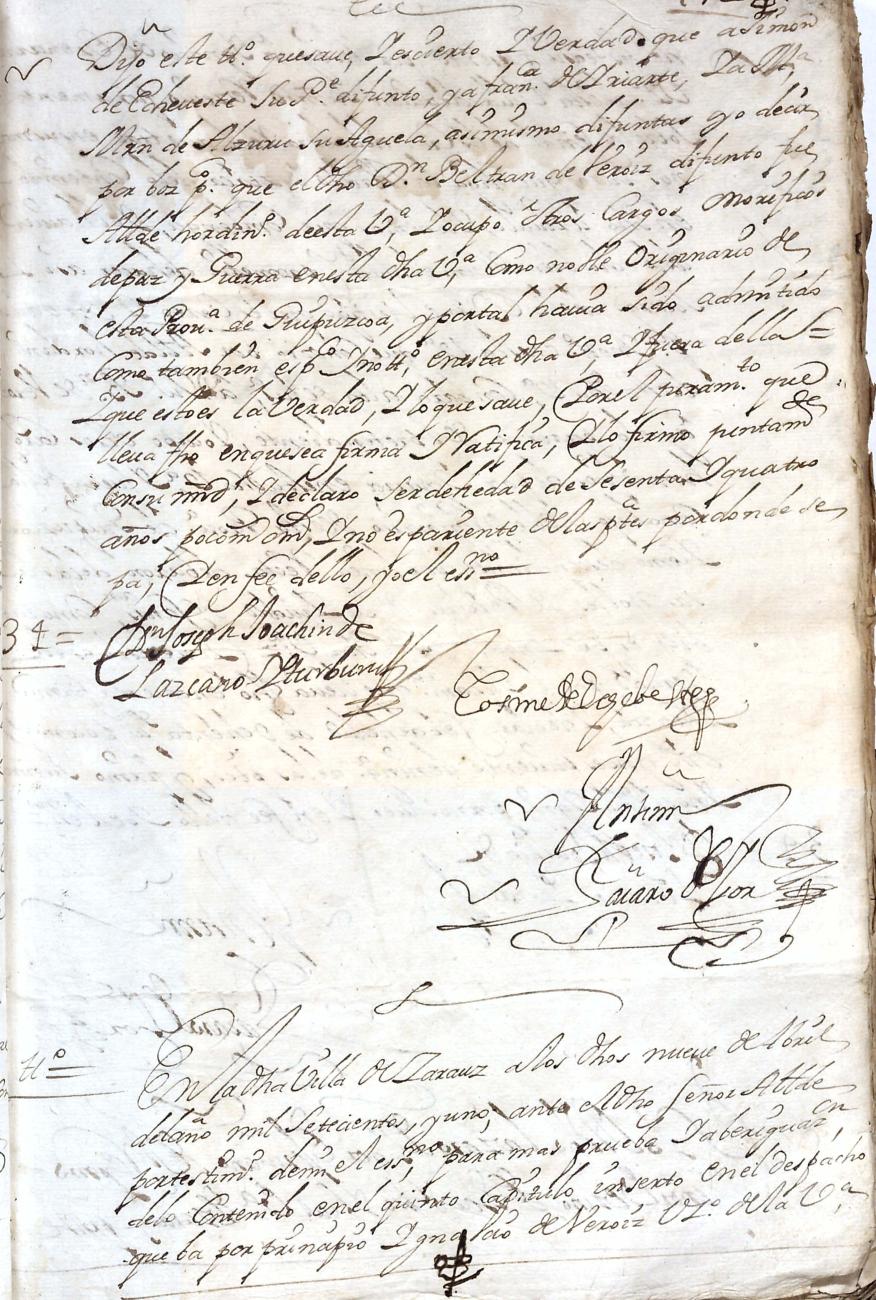 Dijo este tt.º quesave, Yescierto Y Verdad que a Simon
de Echeveste Su P.e difunto, y a fran.ca de Yriarte, Y a M.a
Mrñ de Alzuru Su Aguela, asimismo difuntas oyo decir
por boz p.ca que el dho D.n Beltran de Veroiz difunto fue
Allde hordin.º deesta V.a, Y ocupo otros Cargos onorificos
de paz y Guerra enesta dha V.a, Como noble Originario de
esta Prov.a de Guipuzcoa, y portal havia Sido admitido
Como tambien es p.co Ynott.º, enesta dha V.a, Y fuera della =
Y que estoes la Verdad, Y lo que save, Por el juram.to que
lleva fho enquesea firma Y Ratifica, Y lo firmo juntam.te
Consu mrd, Y declaro Ser dehedad de Sesenta Y quatro
años poco m.s om.s, Y no es pariente de las p.tes por donde se
pa, Y en fee dello, yo el ess.no =
34 =
D.n Joseph Joachin de
Lazcano Yturburu
Cosme de Echebeste
Ante mi
Lazaro de
tt.º =
En la dha Villa de Zarauz alos dhos nueve de Abril
del año mil Setecientos, y uno, ante el dho Señor Allde
por testim.º de mi el ess.no, para mas prueba Y aberiguaz.on
delo Contenido en el quinto Capitulo inserto en el despacho
que ba por prinzipio Ygnacio de Veroiz Vz.º de la V.a